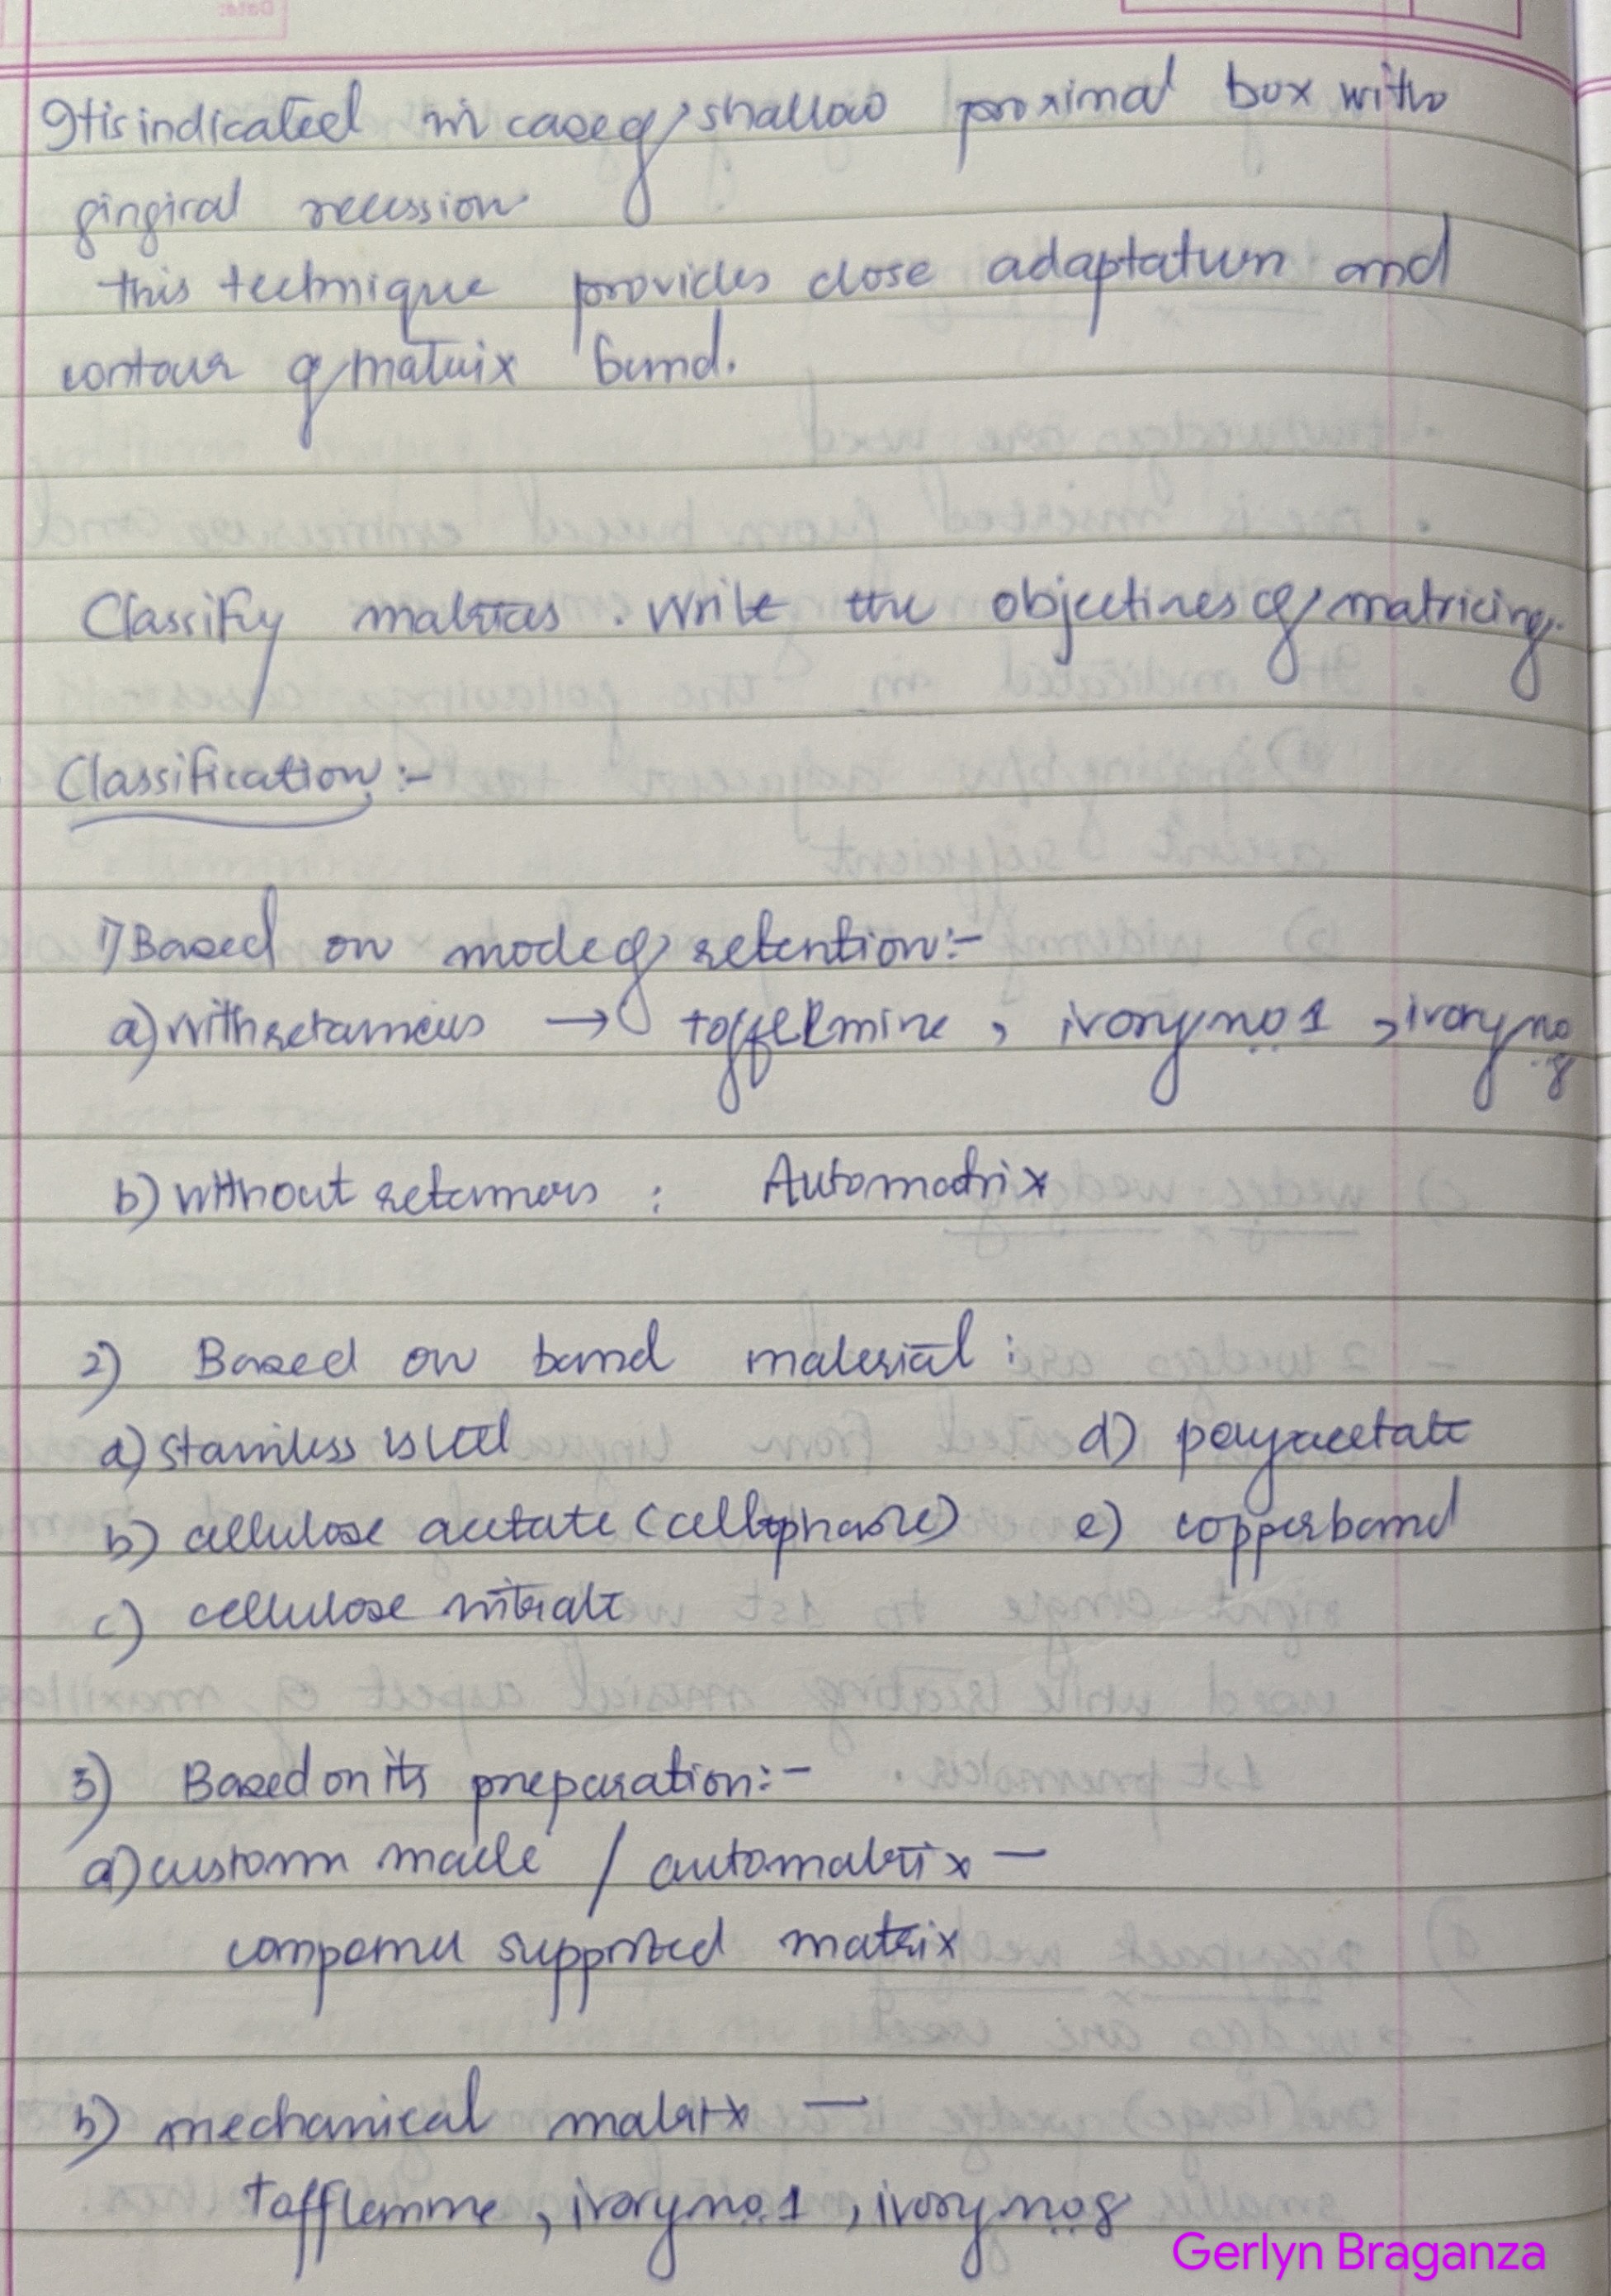 Date:
It is indicated in case of shallow proximal box with
gingival recession
this technique provides close adaptation and
contour of matrix band.
Classify matrices. Write the objectives of matricing.
Classification :-
1) Based on mode of retention:-
a) with retainers → tofflemire, ivory no 1, ivory no
8
b) without retainers : Automatrix
2) Based on band material :
a) stainless steel d) polyacetate
b) cellulose acetate (cellophane) e) copper band
c) cellulose nitrate
3) Based on its preparation:-
a) custom made / automatrix —
compound supported matrix
b) mechanical matrix —
tofflemire, ivory no. 1, ivory no. 8
Gerlyn Braganza